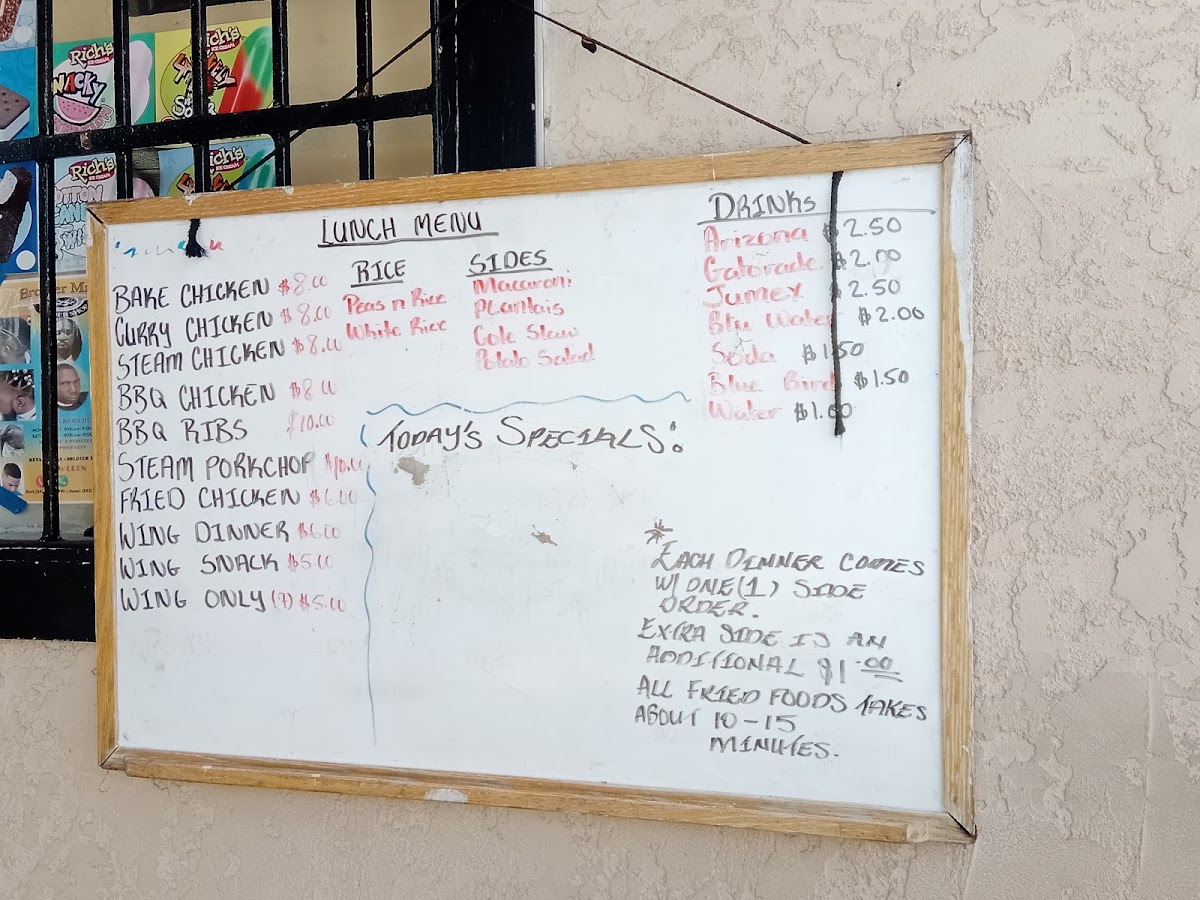 Rich's
WACKY
Rich's
Rich's
Rich's
LUNCH MENU
BAKE CHICKEN $8.00
CURRY CHICKEN $8.00
STEAM CHICKEN $8.00
BBQ CHICKEN $8.00
BBQ RIBS $10.00
STEAM PORKCHOP $10.00
FRIED CHICKEN $6.00
WING DINNER $6.00
WING SNACK $5.00
WING ONLY $5.00
RICE
Peas n Rice
White Rice
SIDES
Macaroni
Plantais
Cole Slaw
Potato Salad
DRINKS
Arizona $2.50
Gatorade $2.00
Jumex $2.50
Btu Water $2.00
Soda $1.50
Blue Bird $1.50
Water $1.00
TODAY'S SPECIALS:
* EACH DINNER COMES
W/ ONE (1) SIDE
ORDER.
EXTRA SIDE IS AN
ADDITIONAL $1.00
ALL FRIED FOODS TAKES
ABOUT 10-15
MINUTES.